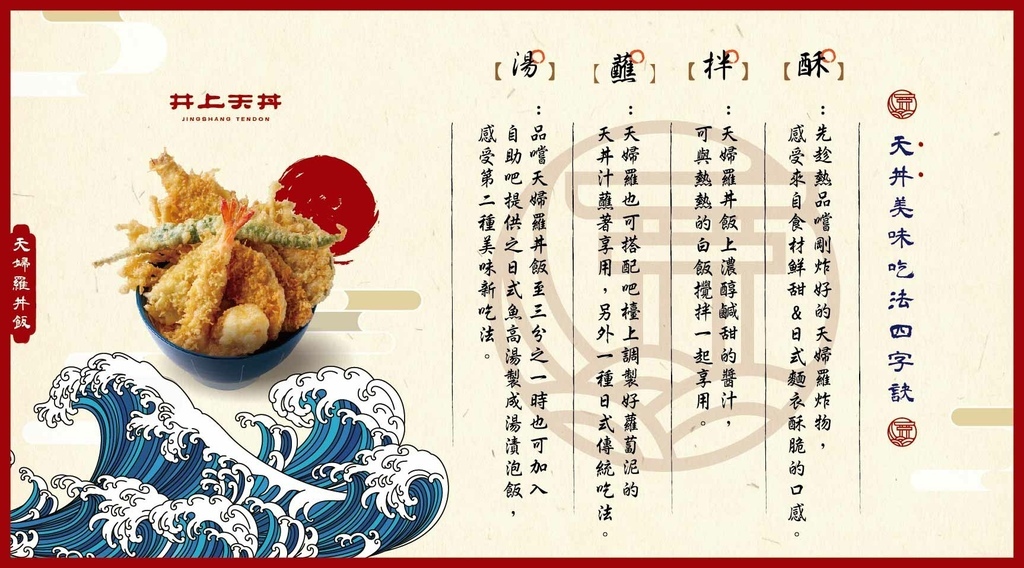 天丼美味吃法四字訣
【酥】
：先趁熱品嚐剛炸好的天婦羅炸物，
感受來自食材鮮甜&日式麵衣酥脆的口感。
【拌】
：天婦羅丼飯上濃醇鹹甜的醬汁，
可與熱熱的白飯攪拌一起享用。
【蘸】
：天婦羅也可搭配吧檯上調製好蘿蔔泥的
天丼汁蘸著享用，另外一種日式傳統吃法。
【湯】
：品嚐天婦羅丼飯至三分之一時也可加入
自助吧提供之日式魚高湯製成湯漬泡飯，
感受第二種美味新吃法。
井上天丼
JINGSHANG TENDON
天婦羅丼飯